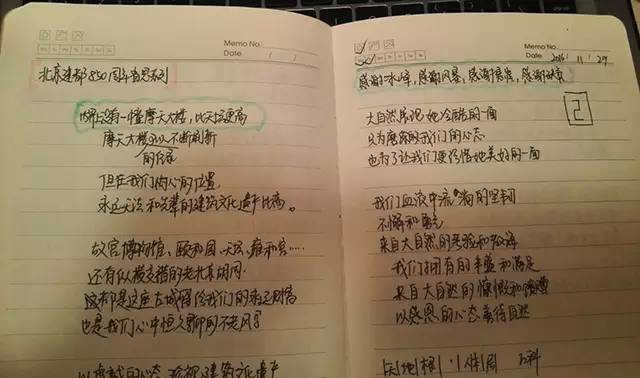 Memo No.
Date / /
北京建都850周年有思系列
世界上没有一幢摩天大楼,比天坛更高
摩天大楼可以不断刷新
的高度
但在我们内心的位置
永远无法和先辈的建筑文化遗产比高。
故宫博物馆、颐和园、天坛、雍和宫……
还有纵横交错的老北京胡同
这都是这座古城留给我们的永远财富
也是我们心中恒久的不老风景
Memo No.
Date 2016 / 11 / 29
感谢冰峰,感谢风暴,感谢
2
大自然展现她冷酷的一面
只为磨砺我们的心志
也为了让我们更珍惜她美好的一面
我们血液中流淌的坚韧
不懈和勇气
来自大自然的考验和教诲
我们拥有的丰盛和满足
来自大自然的慷慨和馈赠
以感恩的心态善待自然